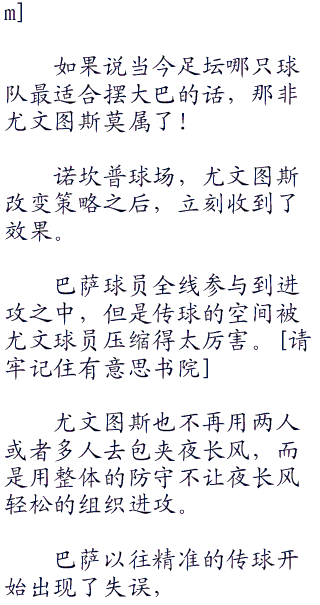 m]
如果说当今足坛哪只球
队最适合摆大巴的话，那非
尤文图斯莫属了！
诺坎普球场，尤文图斯
改变策略之后，立刻收到了
效果。
巴萨球员全线参与到进
攻之中，但是传球的空间被
尤文球员压缩得太厉害。[请
牢记住有意思书院]
尤文图斯也不再用两人
或者多人去包夹夜长风，而
是用整体的防守不让夜长风
轻松的组织进攻。
巴萨以往精准的传球开
始出现了失误，